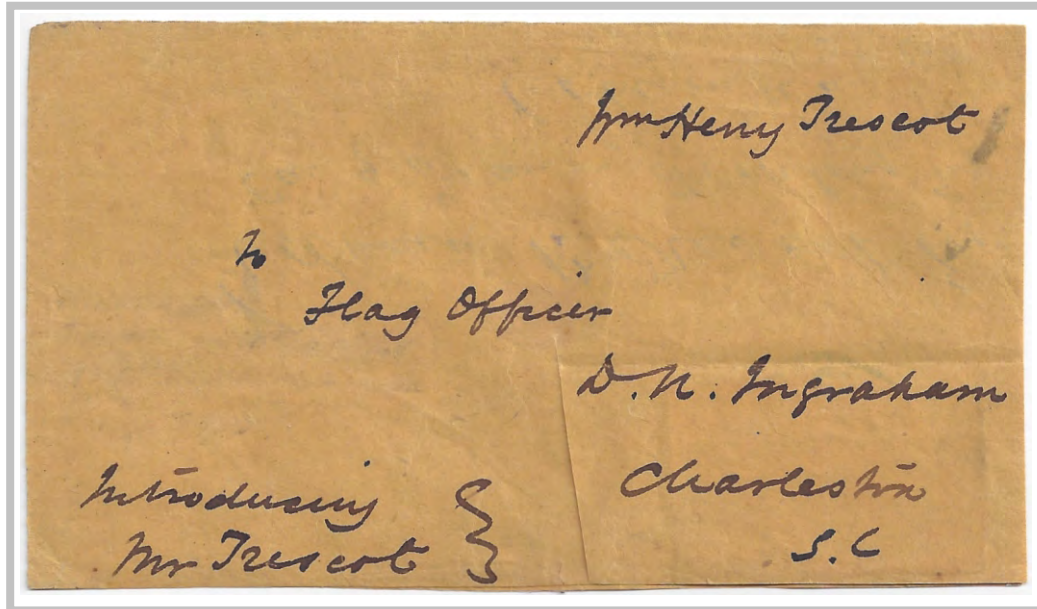 Wm Henry Trescot
To
Flag Officer
D. N. Ingraham
Charleston
S. C
Introducing
Mr Trescot